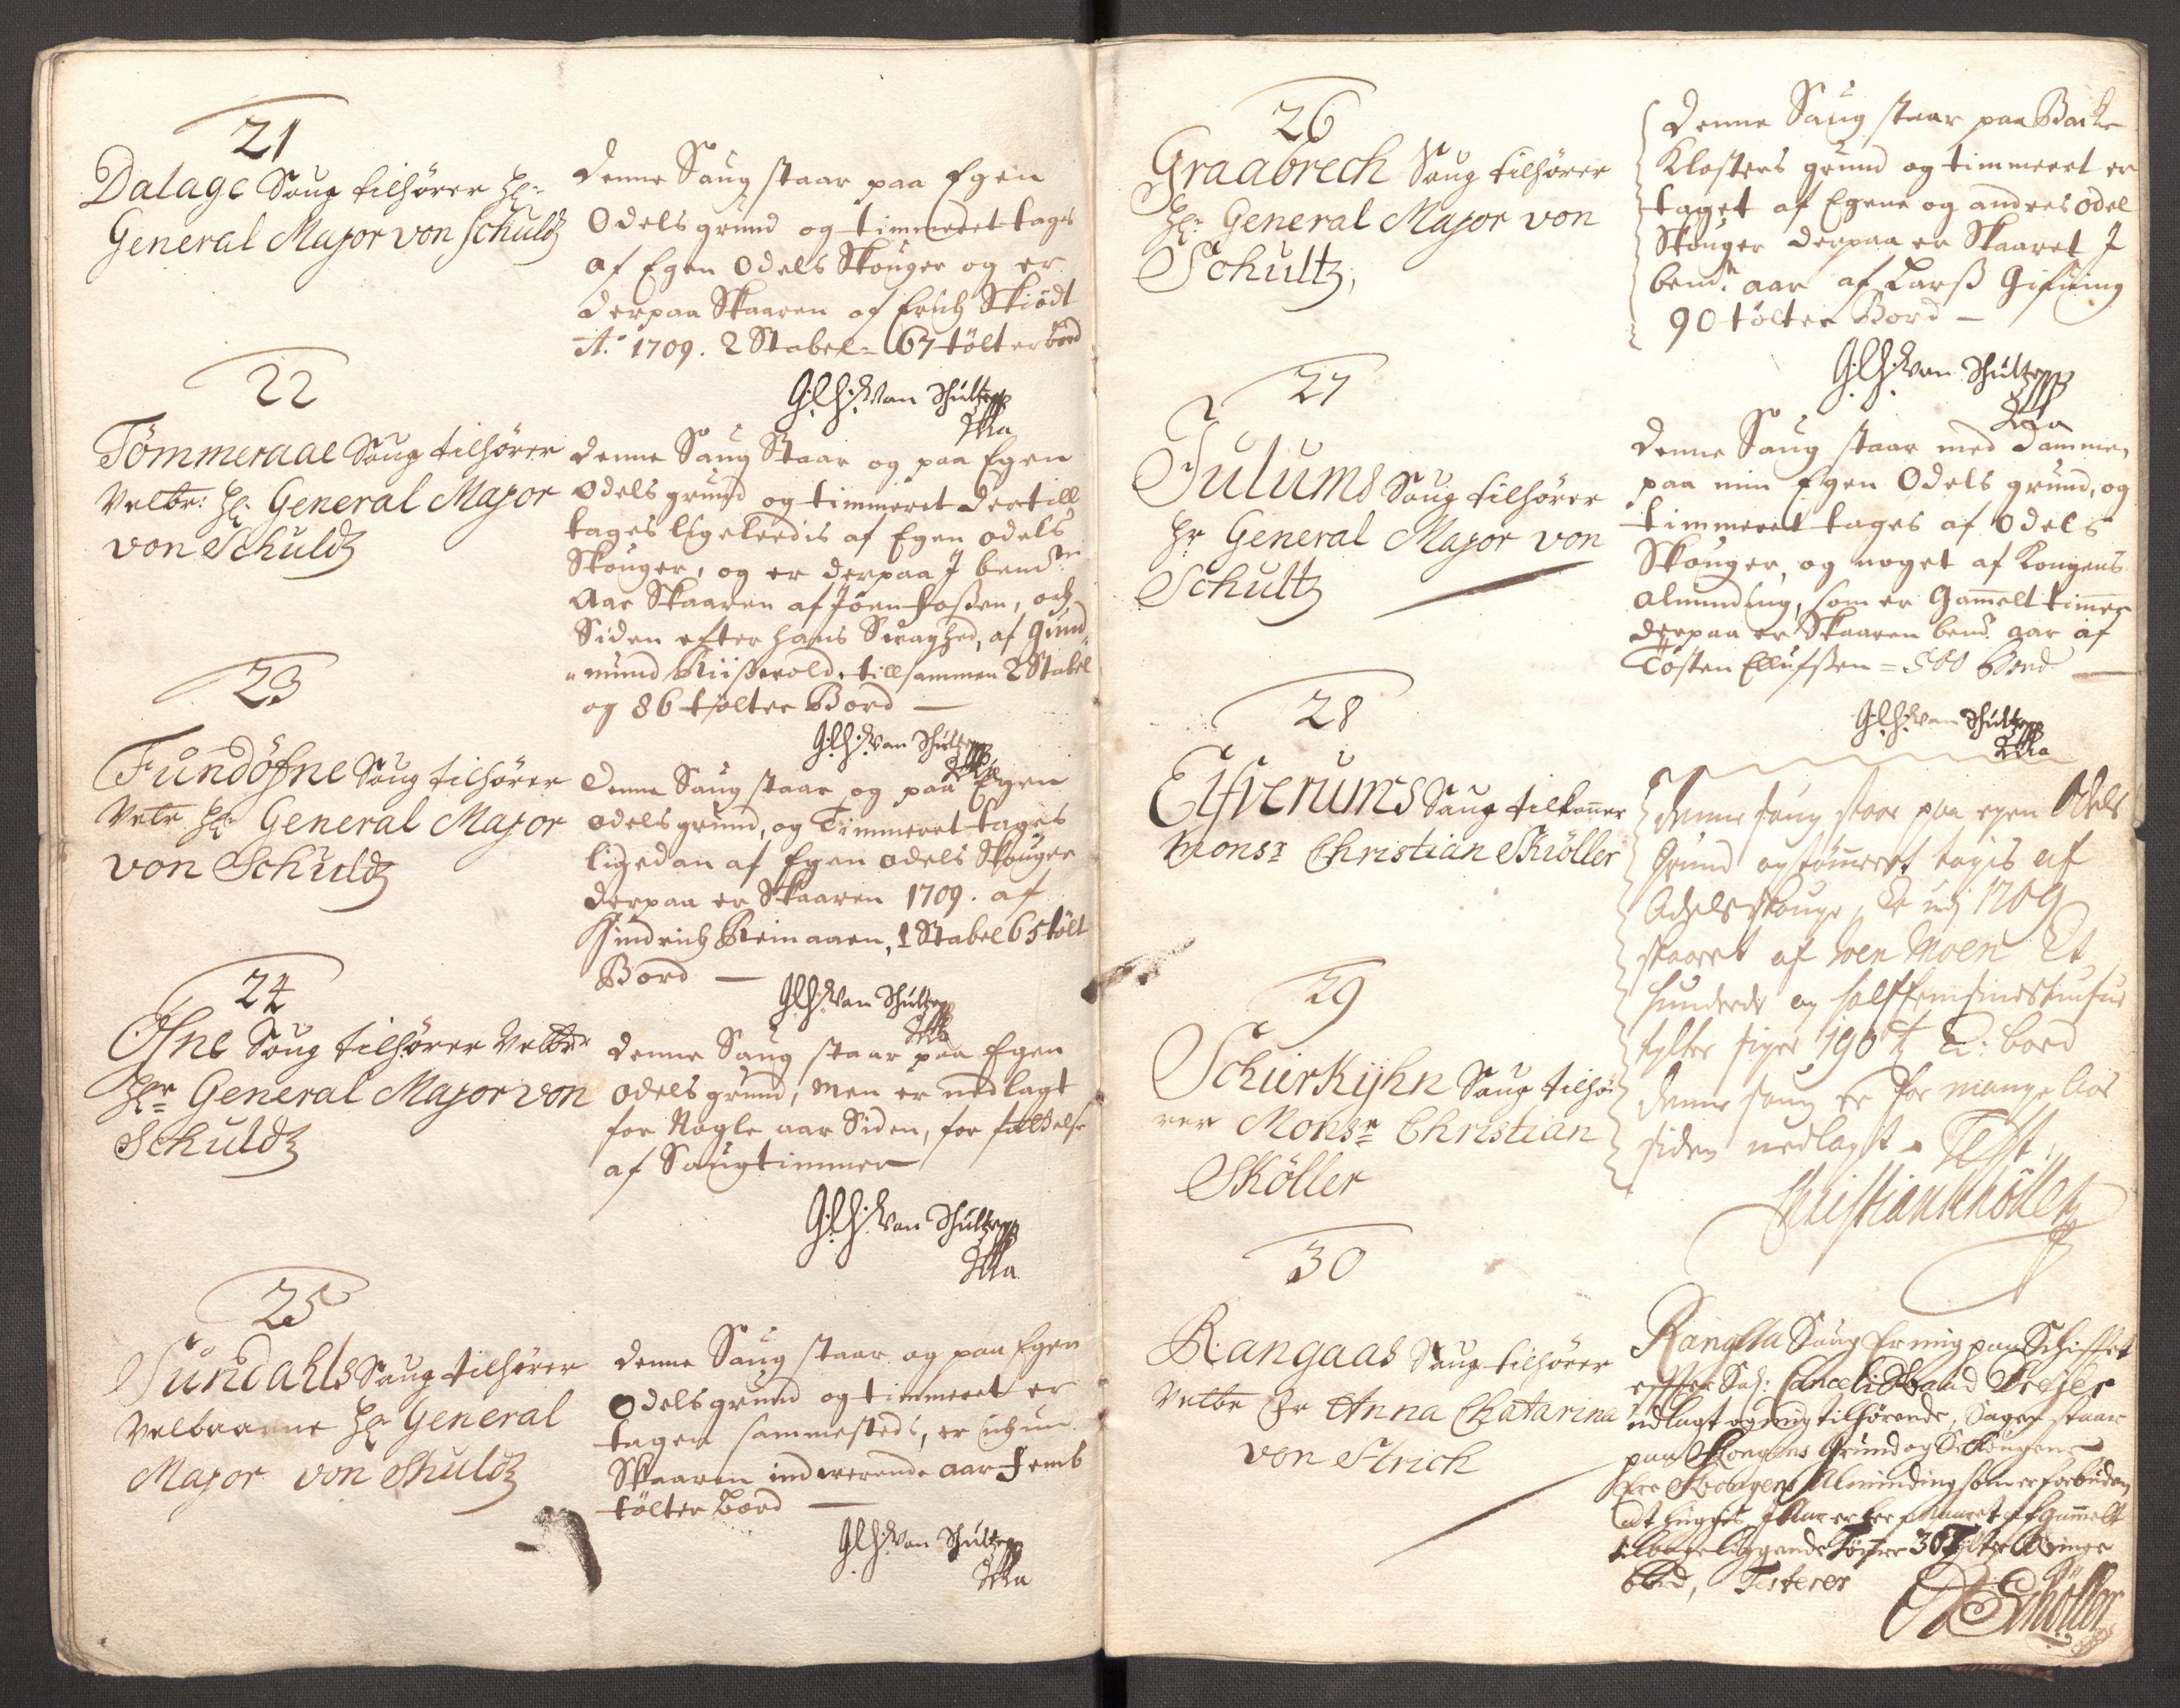 21
Dalage Saug tilhører Hr:
General Major von Schuldz
Denne Saug staar paa Egen
Odels grund og timmeret tages
af Egen Odels Skouger og er
derpaa Skaaren af Erich Skiödt
A:o 1709. 2 Stabel= 67 tölter bord
G.l.H. Von Schultz
22
Tömmeraae Saug tilhører
Velbr: Hr: General Major
von Schuldz
Denne Saug Staar og paa Egen
Odels grund og timmeret dertill
tages ligeleedis af Egen odels
Skouger, og er derpaa J bem.te
Aar Skaaren af Joen, och
Siden efter hans Svaghed, af Gund
"mund tillsammen 2 Stabel
og 86 tolter Bord —
G.l.H. Von Schultz
23
Fundøfne Saug tilhører
Velb: Hr: General Major
von Schuldz
Denne Saug staar og paa Egen
odels grund, og Timmeret tages
ligedan af Egen odels Skouger
derpaa er Skaaren 1709. af
Hindrich Reinaaen, 1 Stabel 65 tölt
Bord —
G.l.H. Von Schultz
24
Ofne Saug tilhører Velbr
Hr General Major von
Schuldz
Denne Saug staar paa Egen
odels grund, men er nedlagt
for Nogle aar Siden, for
af Saugtimmer
G.l.H. Von Schultz
25
Sundahls Saug tilhører
Velbaarne Hr General
Major von Shuldz
Denne Saug staar og paa Egen
Odels grund og timmeret er
tagen sammesteds, er
Skaaren indeverende aar Fembs
tölter bord —
G.l.H. Von Schultz
26
Graabrech Saug tilhører
Hr: General Major von
Schultz,
Denne Saug staar paa Backe
Klosters grund og timmeret er
taget af Egene og andres odel
Skouger derpaa er Skaaret J
bem.te aar af Larß
90 tölter Bord —
G.l.H. Von Schultz
27
Julums Saug tilhører
Hr General Major von
Schultz
Denne Saug staar med Damme,
paa min Egen Odels grund, og
timmeret tages af Odels
Skouger, og noget af Kongens
alminding, som er Gamelt timer
derpaa er Skaaren bem.te aar af
Tosten Ellufßen = 500 Bord —
G.l.H. Von Schultz
28
Elfverums Saug tilkomer
Monsr Christian Skiöller
Denne saug staar paa egen Odels
Grund og tömeret tagis af
Odels skouge, Er udj 1709
skaaret af Joen Moen Et
hunderde og halffemsindstiufue
tylter siger 190 t bord
29
Schierkijhn Saug tilhø
rer Monsr Christian
Sköller
Denne saug er for mange Aar
siden nedlagt. Test.
Christian Schöller
30
Rangaas Saug tilhører
Velbr Fr Anna Chatarina
von Strich
Rangaa Saug Er mig paa Schiffet
effter Sal: Cancelie Raad Dreyer
udlagt og mig tilhørende, Sagen staar
paa Kongens Grund og
Kongens Alminding som er forbuden
at hugges. J Aar er her skaaret af gammelt
tilbage liggende 36 Tylter Ringe
bord, Testerer
Schöller